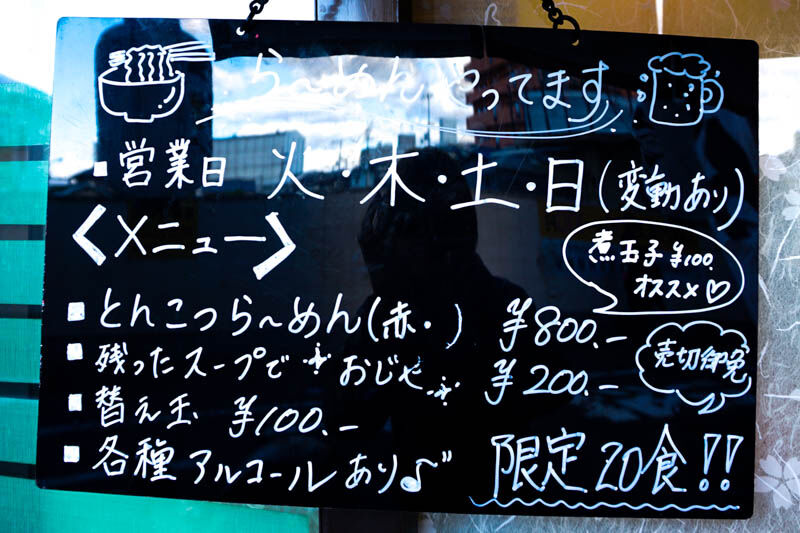 ら〜めんやってます
営業日 火・木・土・日(変動あり)
<メニュー>
煮玉子¥100.
オススメ♡
とんこつら〜めん(赤・ ) ¥800.-
残ったスープで おじや ¥200.-
売切御免
替え玉 ¥100.-
各種アルコールあり♪
限定20食!!